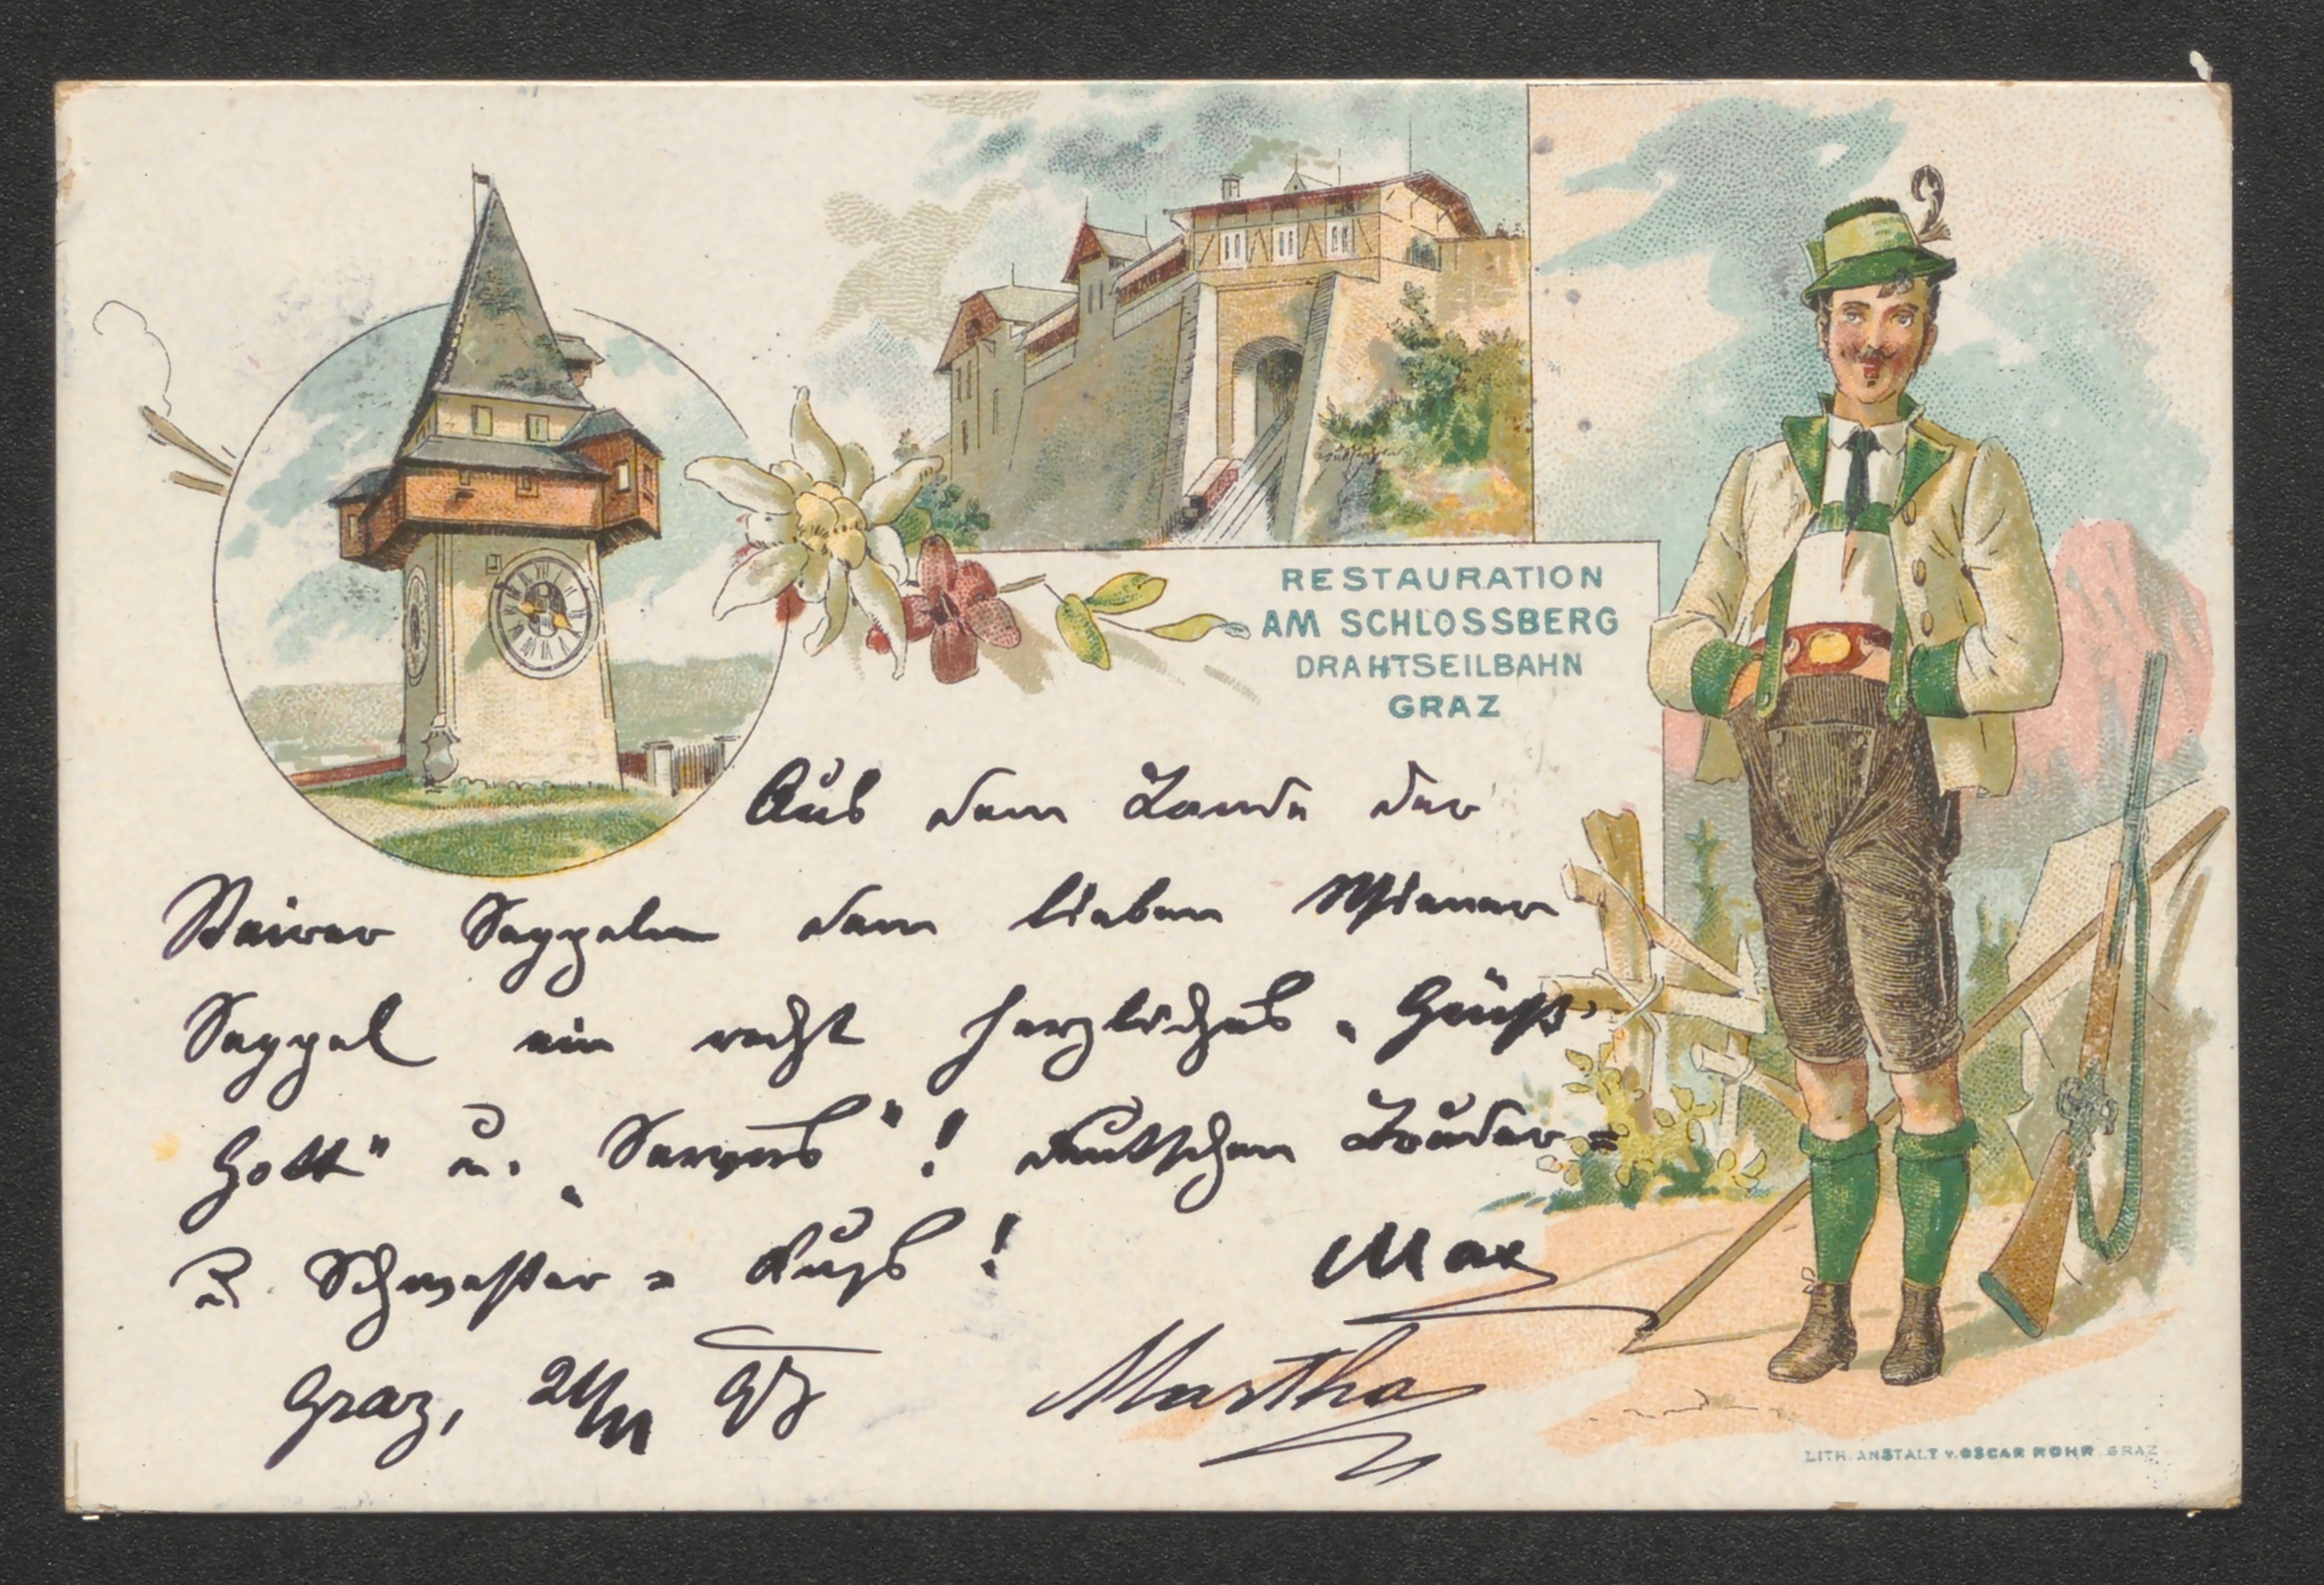 RESTAURATION
AM SCHLOSSBERG
DRAHTSEILBAHN
GRAZ
Aus dem Lande der
Steirer Seppeln dem lieben Wiener
Seppel ein recht herzliches „Grüß
Gott" u. „Servus"! deutschen Bruder=
u. Schwester = Kuß!
Max
Martha
Graz, 21/VI 97
LITH. ANSTALT v. OSCAR ROHR GRAZ